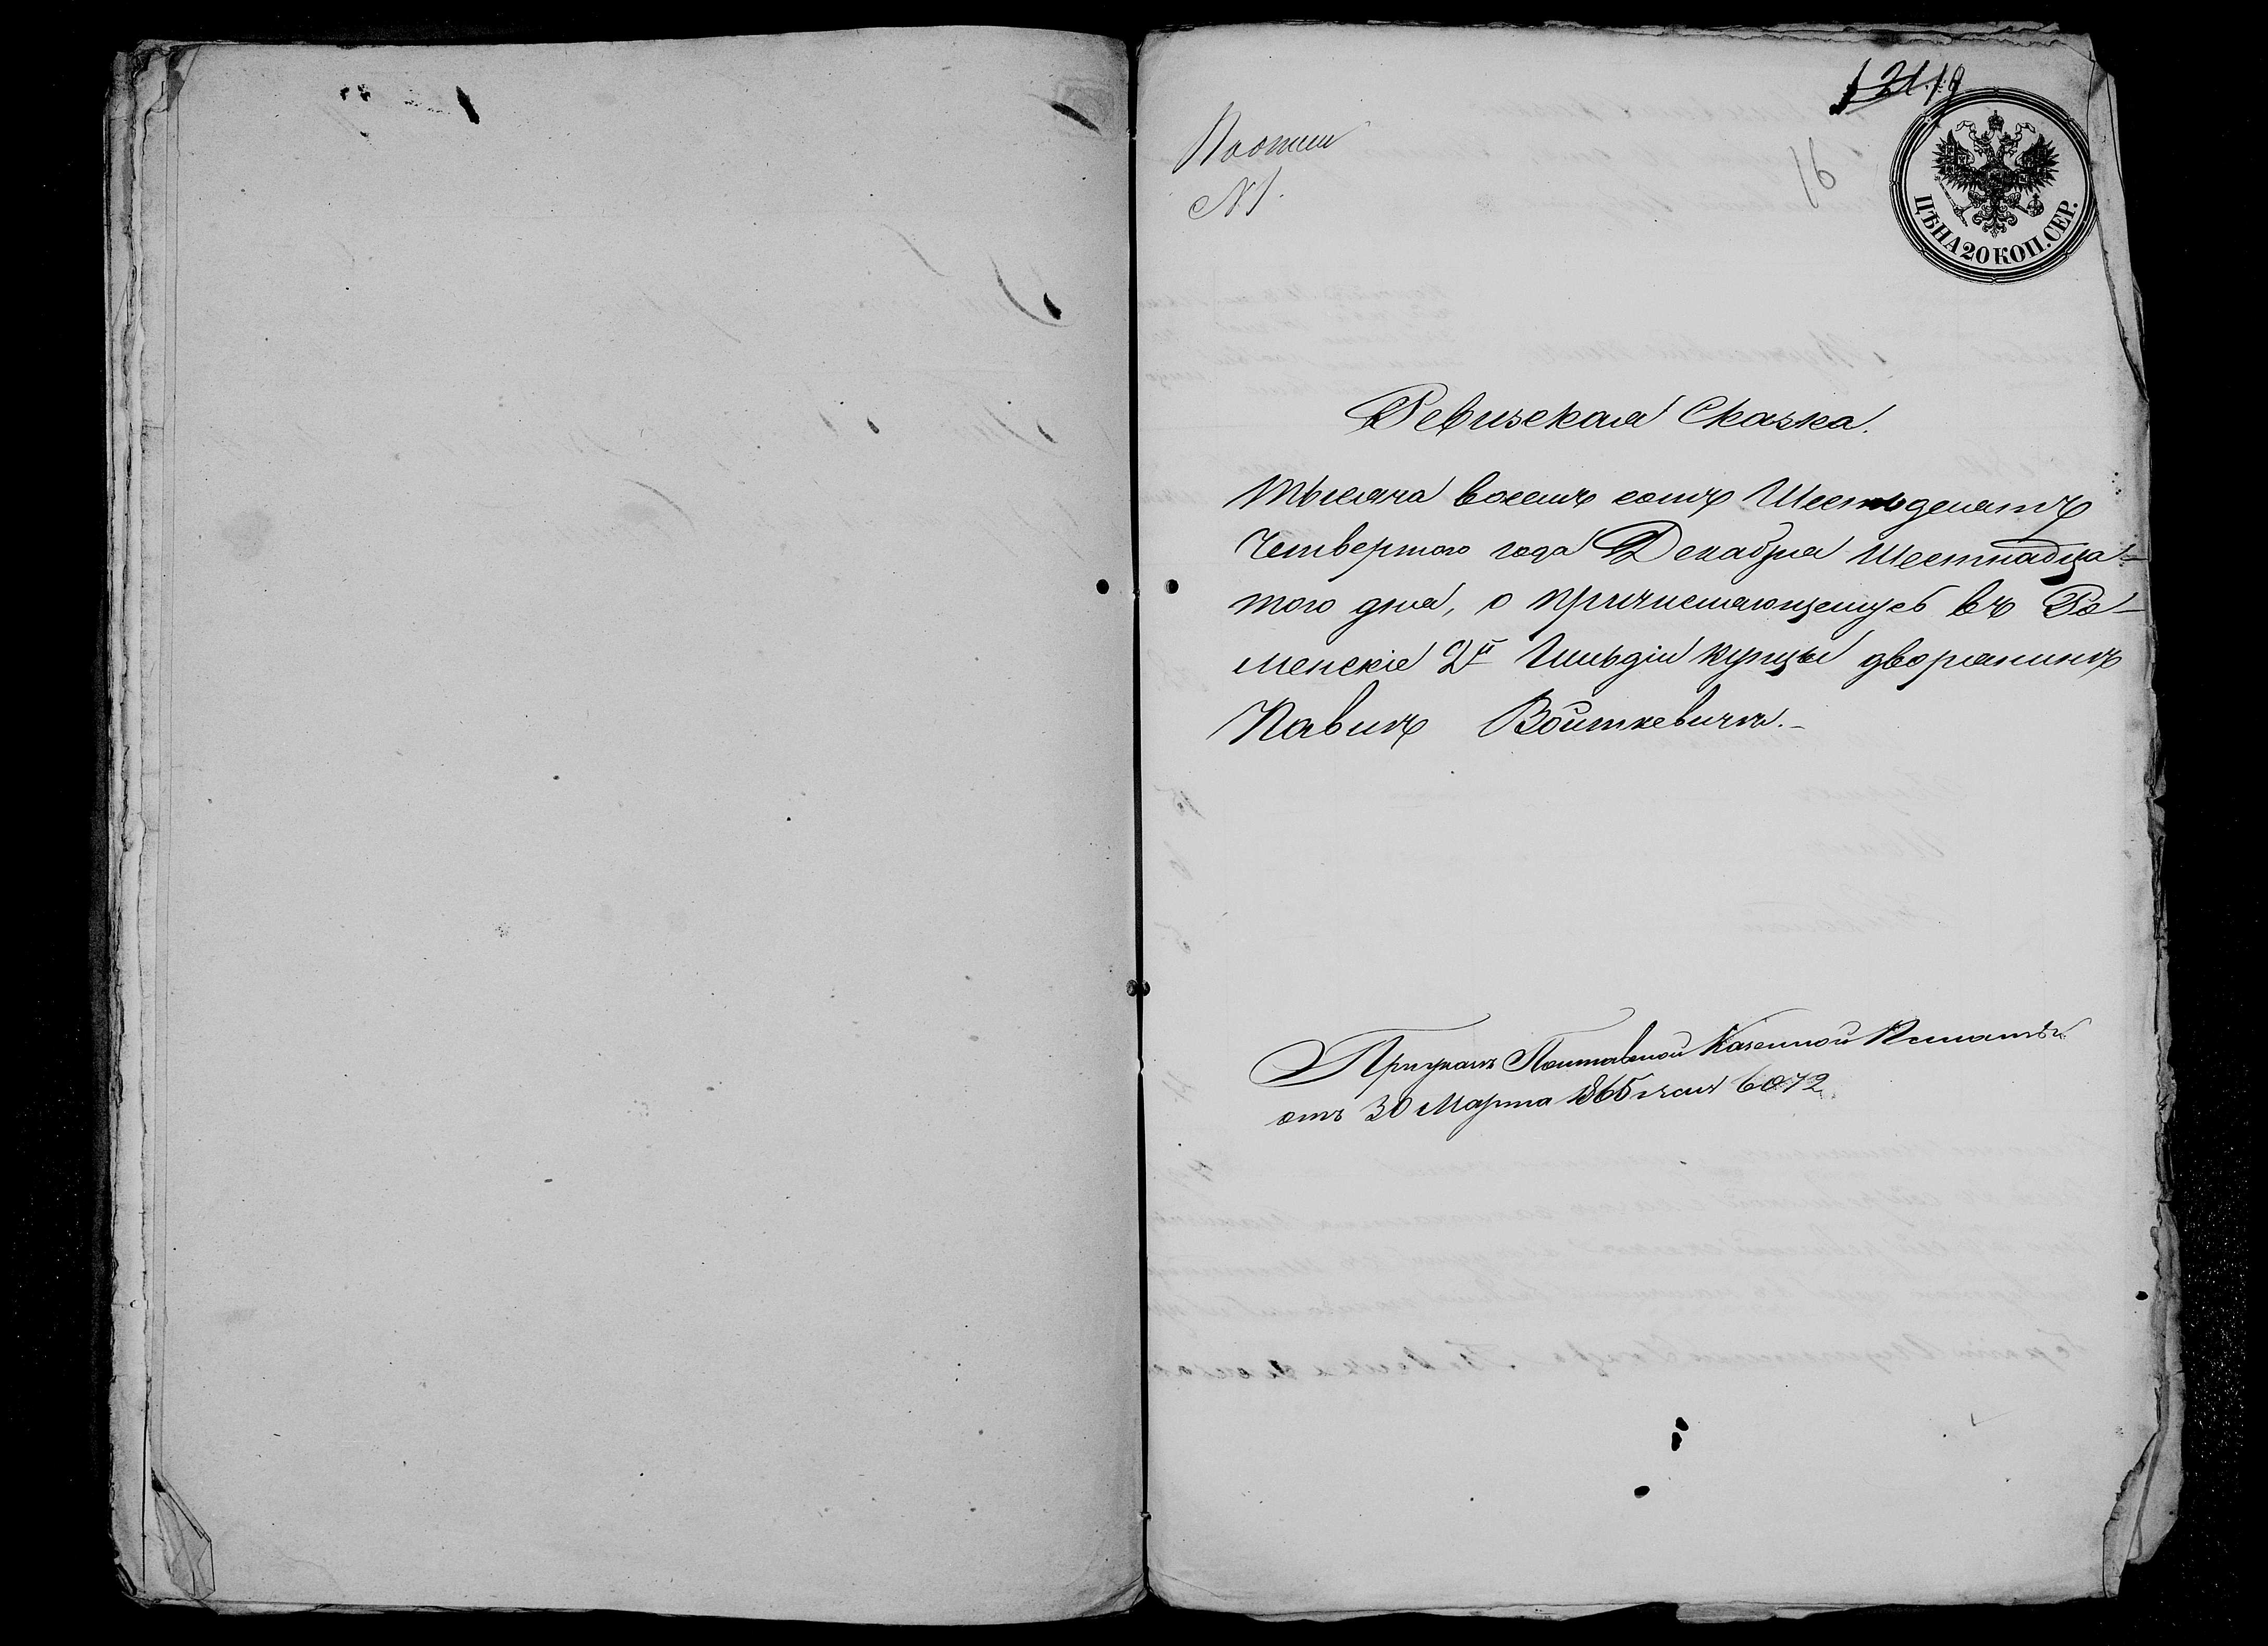 21.19
16
№ 1.
ЦѢНА 20 КОП. СЕР.
Ревизская Сказка.
Тысяча восемь сотъ Шестьдесятъ
Четвертого года Декабря Шестнадца-
того дня, о причисляющемуся въ Ро-
менскіе 2й Гильдіи купцы дворянинъ
Павилъ Войткевичъ.-
При указѣ Полтавской Казенной Палаты
отъ 30 Марта 1865 г. за № 6072